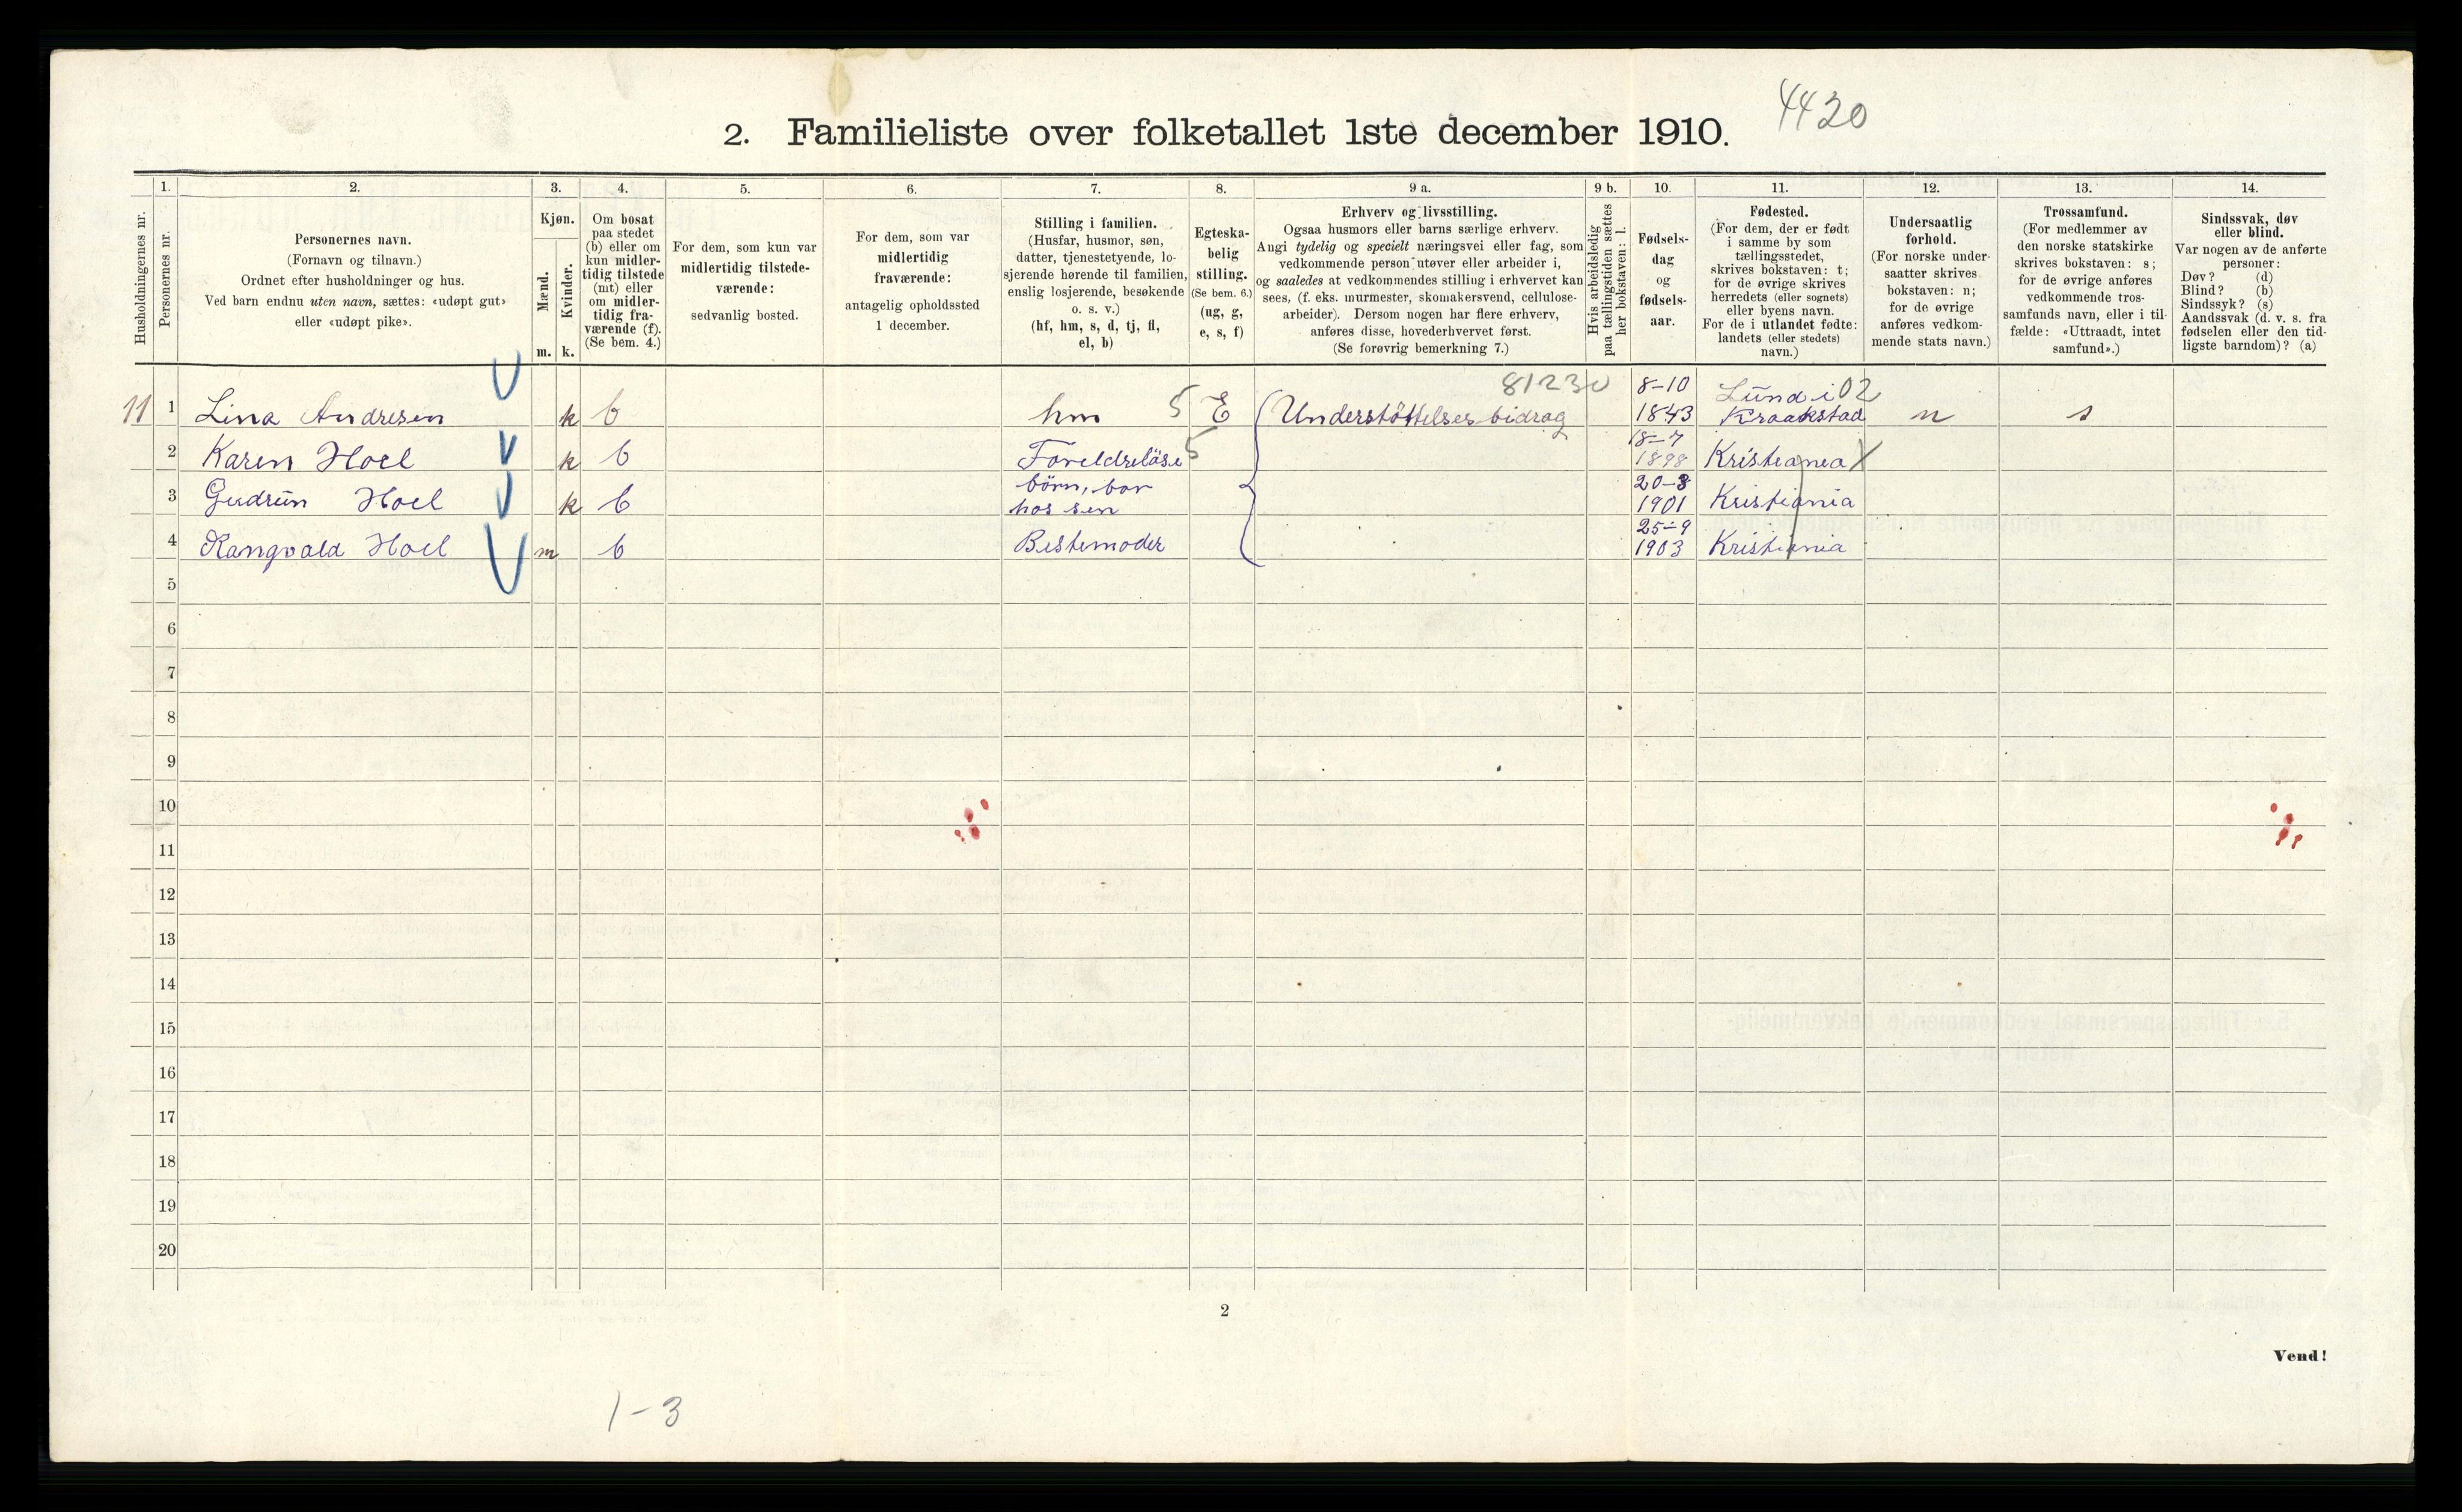 4420
2. Familieliste over folketallet 1ste december 1910.
1. 2. 3. 4. 5. 6. 7. 8. 9 a. 9 b. 10. 11. 12. 13. 14.
Husholdningernes nr.
Personernes nr.
Personernes navn.
(Fornavn og tilnavn.)
Ordnet efter husholdninger og hus.
Ved barn endnu uten navn, sættes: «udøpt gut»
eller «udøpt pike».
Kjøn.
Mænd.
Kvinder.
m. k.
Om bosat
paa stedet
(b) eller om
kun midler-
tidig tilstede
(mt) eller
om midler-
tidig fra-
værende (f).
(Se bem. 4.)
For dem, som kun var
midlertidig tilstede-
værende:
sedvanlig bosted.
For dem, som var
midlertidig
fraværende:
antagelig opholdssted
1 december.
Stilling i familien.
(Husfar, husmor, søn,
datter, tjenestetyende, lo-
sjerende hørende til familien,
enslig losjerende, besøkende
o. s. v.)
(hf, hm, s, d, tj, fl,
el, b)
Egteska-
belig
stilling.
(Se bem. 6.)
(ug, g,
e, s, f)
Erhverv og livsstilling.
Ogsaa husmors eller barns særlige erhverv.
Angi tydelig og specielt næringsvei eller fag, som
vedkommende person utøver eller arbeider i,
og saaledes at vedkommendes stilling i erhvervet kan
sees, (f. eks. murmester, skomakersvend, cellulose-
arbeider). Dersom nogen har flere erhverv,
anføres disse, hovederhvervet først.
(Se forøvrig bemerkning 7.)
Hvis arbeidsledig
paa tællingstiden sættes
her bokstaven: l.
Fødsels-
dag
og
fødsels-
aar.
Fødested.
(For dem, der er født
i samme by som
tællingsstedet,
skrives bokstaven: t;
for de øvrige skrives
herredets (eller sognets)
eller byens navn.
For de i utlandet fødte:
landets (eller stedets)
navn.)
Undersaatlig
forhold.
(For norske under-
saatter skrives
bokstaven: n;
for de øvrige
anføres vedkom-
mende stats navn.)
Trossamfund.
(For medlemmer av
den norske statskirke
skrives bokstaven: s;
for de øvrige anføres
vedkommende tros-
samfunds navn, eller i til-
fælde: «Uttraadt, intet
samfund».)
Sindssvak, døv
eller blind.
Var nogen av de anførte
personer:
Døv? (d)
Blind? (b)
Sindssyk? (s)
Aandssvak (d. v. s. fra
fødselen eller den tid-
ligste barndom)? (a)
81230 8-10 Lund i 02
11 1 Lina Andresen k b hm 5 E Understöttelses bidrag 1843 Kraakstad n s
18-7
2 Karen Hoel k b Foreldreläse 5 1898 Kristiania X
börn, bor 20-3
3 Gudrun Hoel k b hos sen 1901 Kristiania
25-9
4 Rangvald Hoel m b Bestemoder 1903 Kristiania
5
6
7
8
9
10
11
12
13
14
15
16
17
18
19
20
2
Vend!
1-3